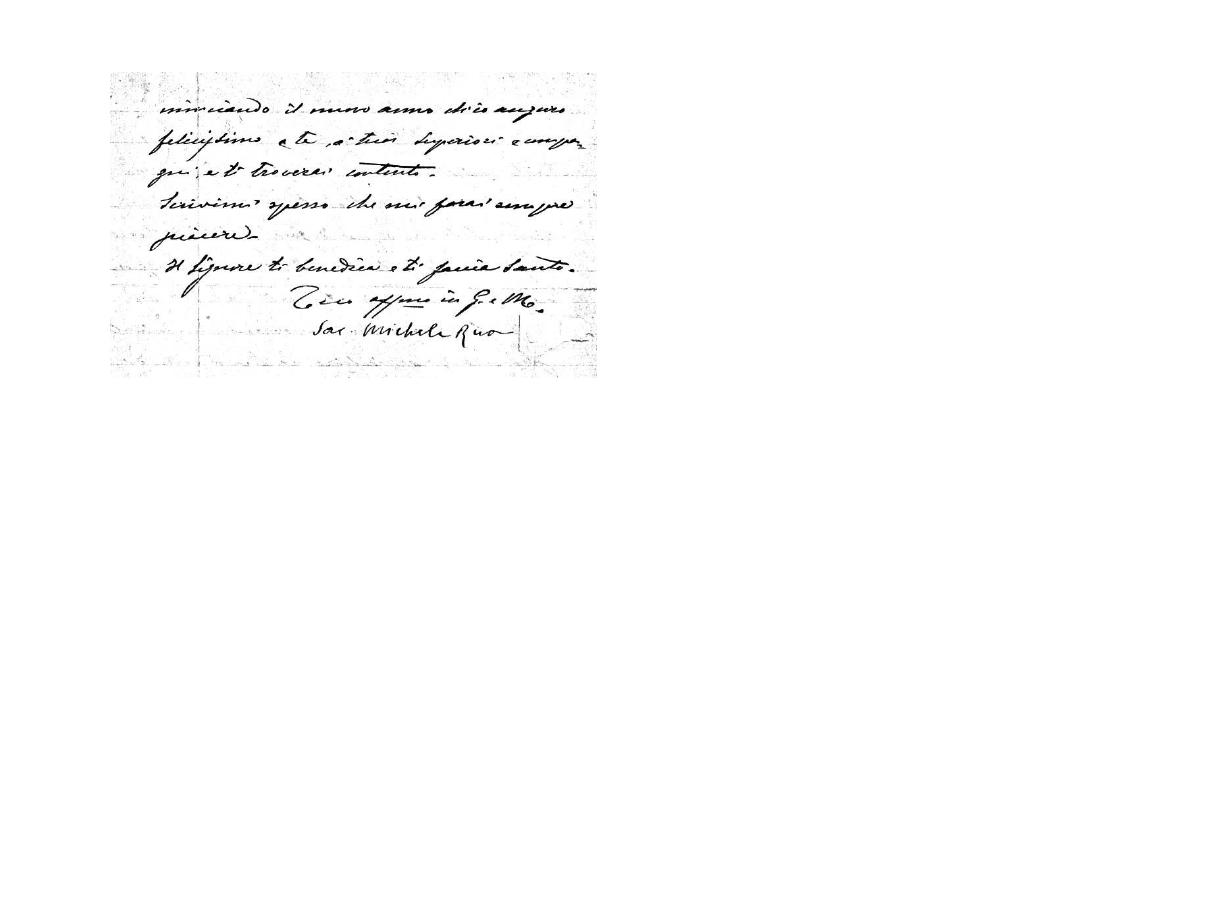 minciando il nuovo anno ch'io auguro
felicissimo a te, a' tuoi Superiori e compa-
gni, e ti troverai contento.
Scrivimi spesso che mi farai sempre
piacere.
Il Signore ti benedica e ti faccia Santo.
Tuo affmo in G. e M.
Sac. Michele Rua